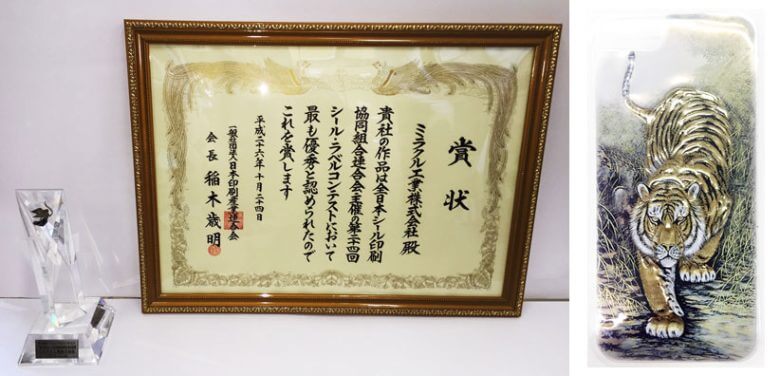 賞状
ミラクル工業株式会社 殿
貴社の作品は全日本シール印刷
協同組合連合会主催の第二十四回
シール・ラベルコンテストにおいて
最も優秀と認められたので
これを賞します
平成二十六年十月二十四日
一般社団法人日本印刷産業連合会
会長 稲木歳明